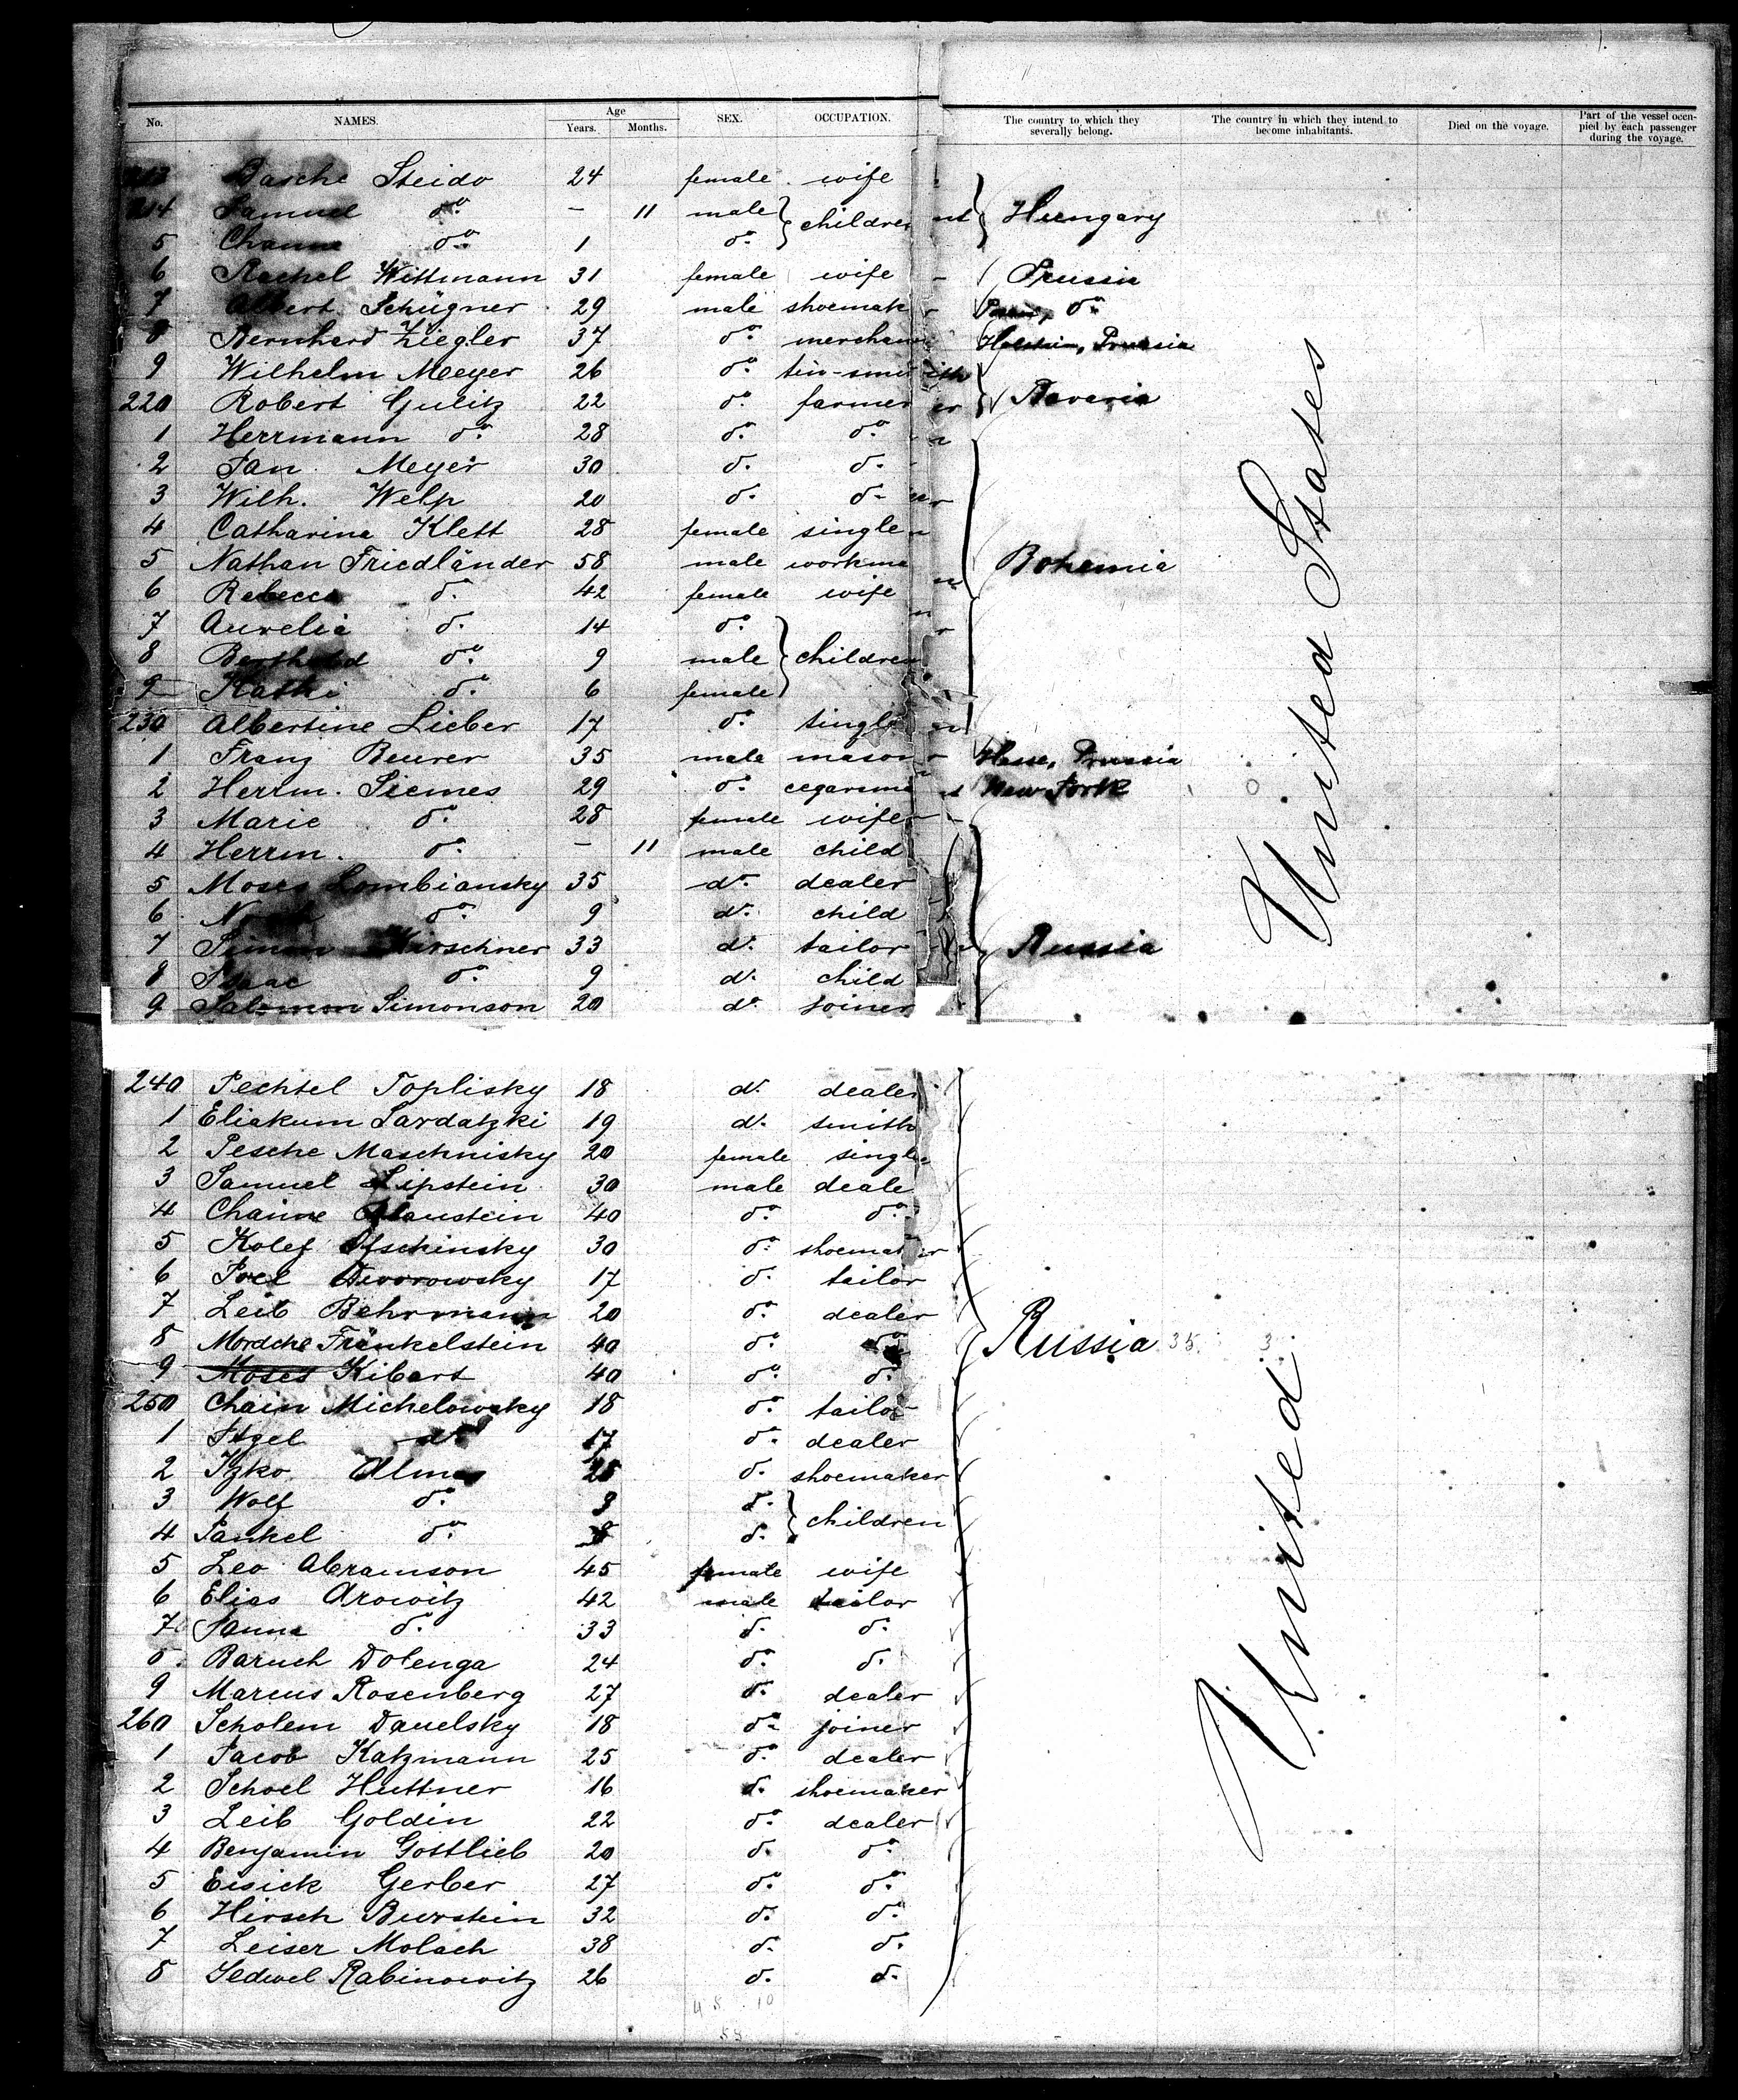 No. NAMES. Age Years. Months. SEX. OCCUPATION. The country to which they severally belong. The country in which they intend to become inhabitants. Died on the voyage. Part of the vessel occupied by each passenger during the voyage.
Basche Steido 24 female wife
214 Samuel do. - 11 male children Hungary
5 do. 1 do.
6 Rachel Wittmann 31 female wife Prussia
7 Albert Schügner 29 male shoemak do.
8 Bernhard Ziegler 37 do. merchan Holstein, Prussia
9 Wilhelm Meeyer 26 do. tin-smith
220 Robert Gulitz 22 do. farmer Bavaria
1 Herrmann do. 28 do. do.
2 Jan Meyer 30 do. do.
3 Wilh. Welp 20 do. do.
4 Catharina Klett 28 female single
5 Nathan Friedländer 58 male workma Bohemia
6 Rebecca do. 42 female wife
7 Aurelia do. 14 do.
8 Berthold do. 9 male children
9 Kathi do. 6 female
230 Albertine Lieber 17 do. single
1 Franz Beurer 35 male mason Hesse, Prussia
2 Herrm. Siemes 29 do. cegarsma New York
3 Marie do. 28 female wife
4 Herrm. do. - 11 male child
5 Moses Lombiansky 35 do. dealer
6 do. 9 do. child
7 Simon Hirschner 33 do. tailor Russia
8 Isaac do. 9 do. child
9 Salomon Simonson 20 do. joiner
United States
240 Pechtel Toplisky 18 do. dealer
1 Eliakum Sardatzki 19 do. smith
2 Pesche Maschnisky 20 female single
3 Samuel Lipstein 30 male deale
4 Chaime Blaustein 40 do. do.
5 Kolef 30 do. shoemaker
6 Joel Dworowsky 17 do. tailor
7 Leib Behrmann 20 do. dealer
8 Mordche Fränkelstein 40 do. do. Russia 35. 3
9 Moses Kibart 40 do. do.
250 Chain Michelowsky 18 do. tailor
1 Itzel do. 17 do. dealer
2 Itzko Olmer do. shoemaker
3 Wolf do. 9 do. children
4 Jankel do. 8 do.
5 Leo Abramson 45 female wife
6 Elias Arowitz 42 male tailor
7 Janna do. 33 do. do.
8 Baruch Dolenga 24 do. do.
9 Marcus Rosenberg 27 do. dealer
260 Scholem Dauelsky 18 do. joiner
1 Jacob Katzmann 25 do. dealer
2 Schoel Huttner 16 do. shoemaker
3 Leib Goldin 22 do. dealer
4 Benjamin Gottlieb 20 do. do.
5 Eisick Gerber 27 do. do.
6 Hirsch Burstein 32 do. do.
7 Leiser Molach 38 do. do.
8 Sedwel Rabinowitz 26 do. do.
United